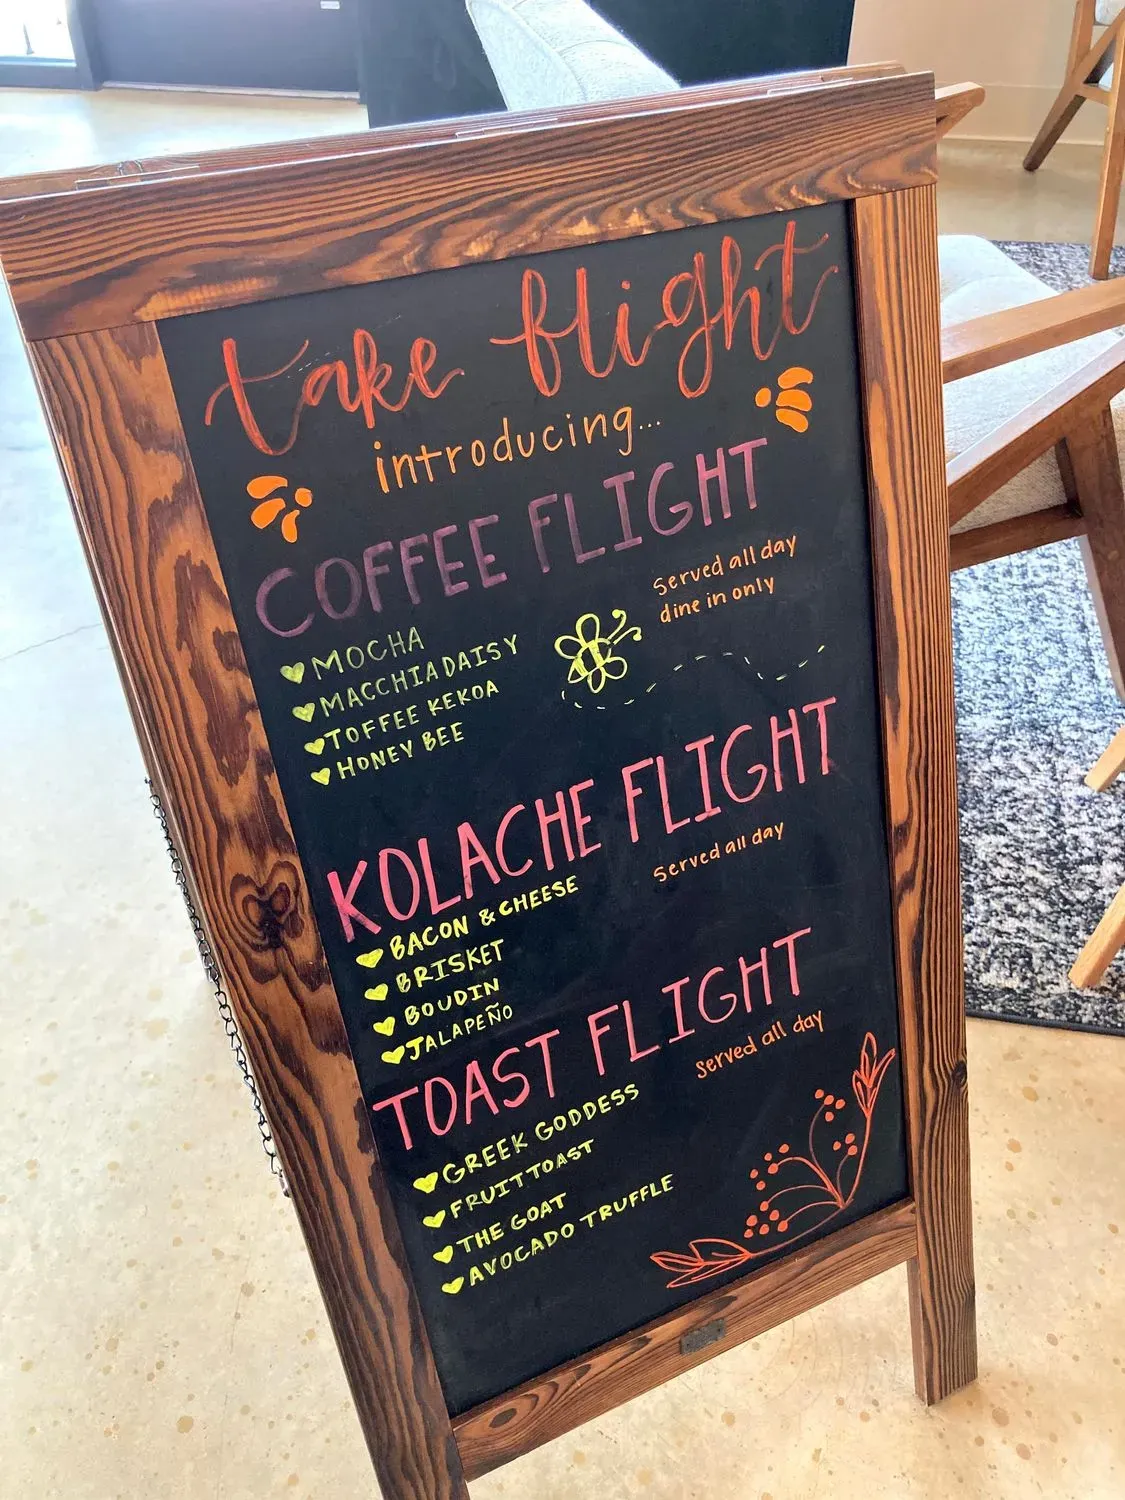 take flight
introducing...
COFFEE FLIGHT
served all day
dine in only
MOCHA
MACCHIADAISY
TOFFEE KEKOA
HONEY BEE
KOLACHE FLIGHT
served all day
BACON & CHEESE
BRISKET
BOUDIN
JALAPEÑO
TOAST FLIGHT
served all day
GREEK GODDESS
FRUIT TOAST
THE GOAT
AVOCADO TRUFFLE